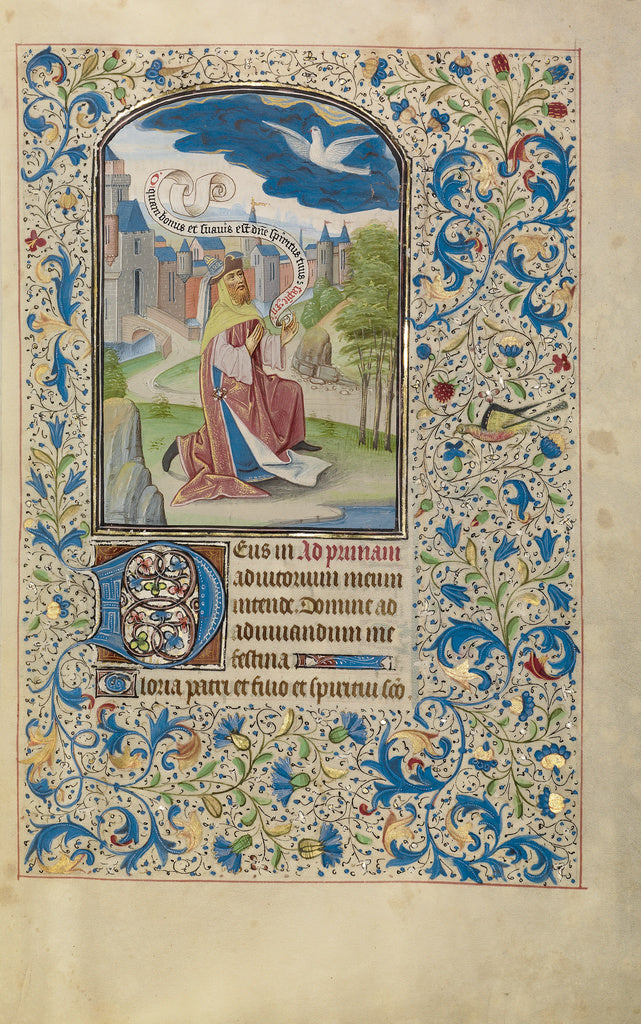 O quam bonus et suavis est dn̄e spiritus tuus: sapie. xii
Deus in Ad primam
adiutorium meum
intende. Domine ad
adiuuandum me
festina
Gloria patri et filio et spiritui sc̄o